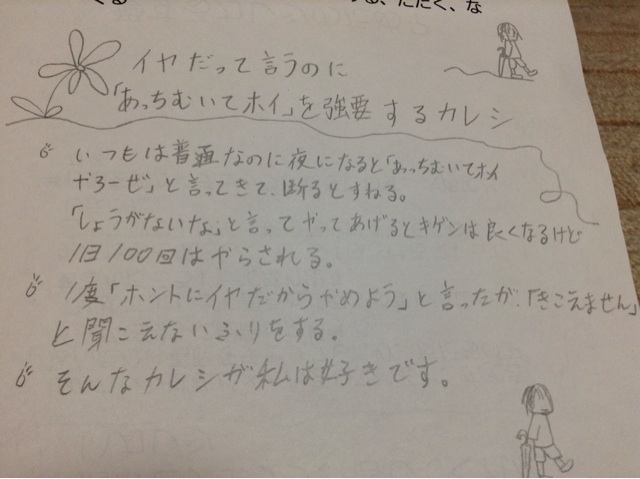 くる
た、たたく、な
イヤだって言うのに
「あっちむいてホイ」を強要するカレシ
いつもは普通なのに夜になると「あっちむいてホイ
やろーぜ」と言ってきて、断るとすねる。
「しょうがないな」と言ってやってあげるとキゲンは良くなるけど
1日100回はやらされる。
1度「ホントにイヤだからやめよう」と言ったが、「きこえません」
と聞こえないふりをする。
そんなカレシが私は好きです。